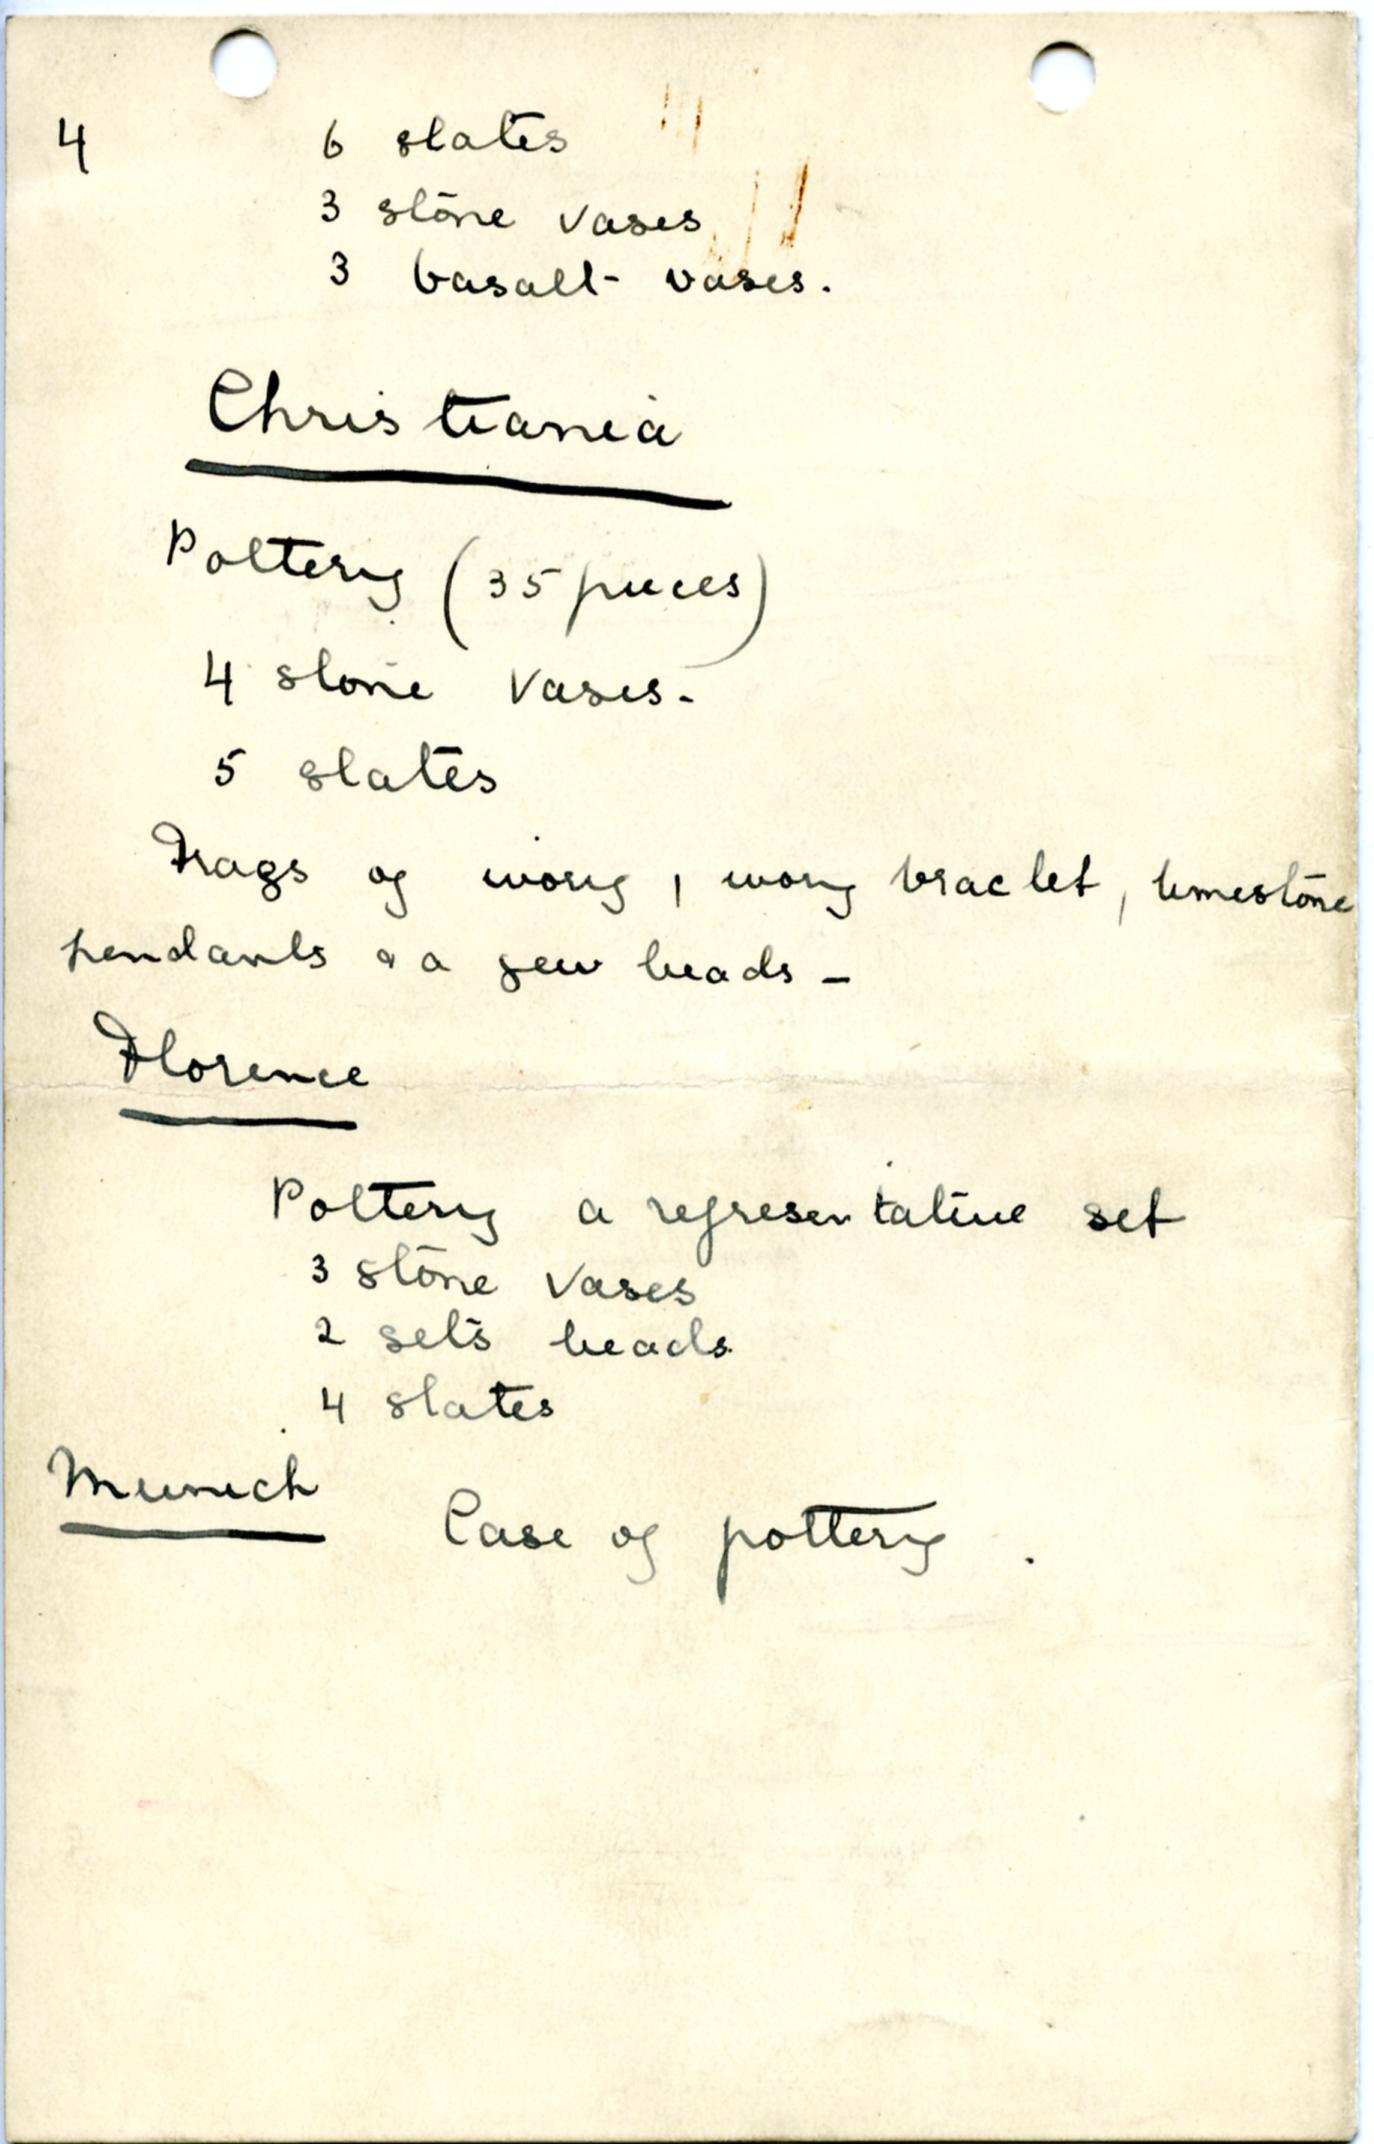 4 6 slates
3 stone vases
3 basalt vases.
Christiania
Pottery (35 pieces)
4 stone vases-
5 slates
Frags of ivory, ivory braclet, limestone
pendants & a few beads -
Florence
Pottery a representative set
3 stone vases
2 sets beads
4 slates
Munich Case of pottery.